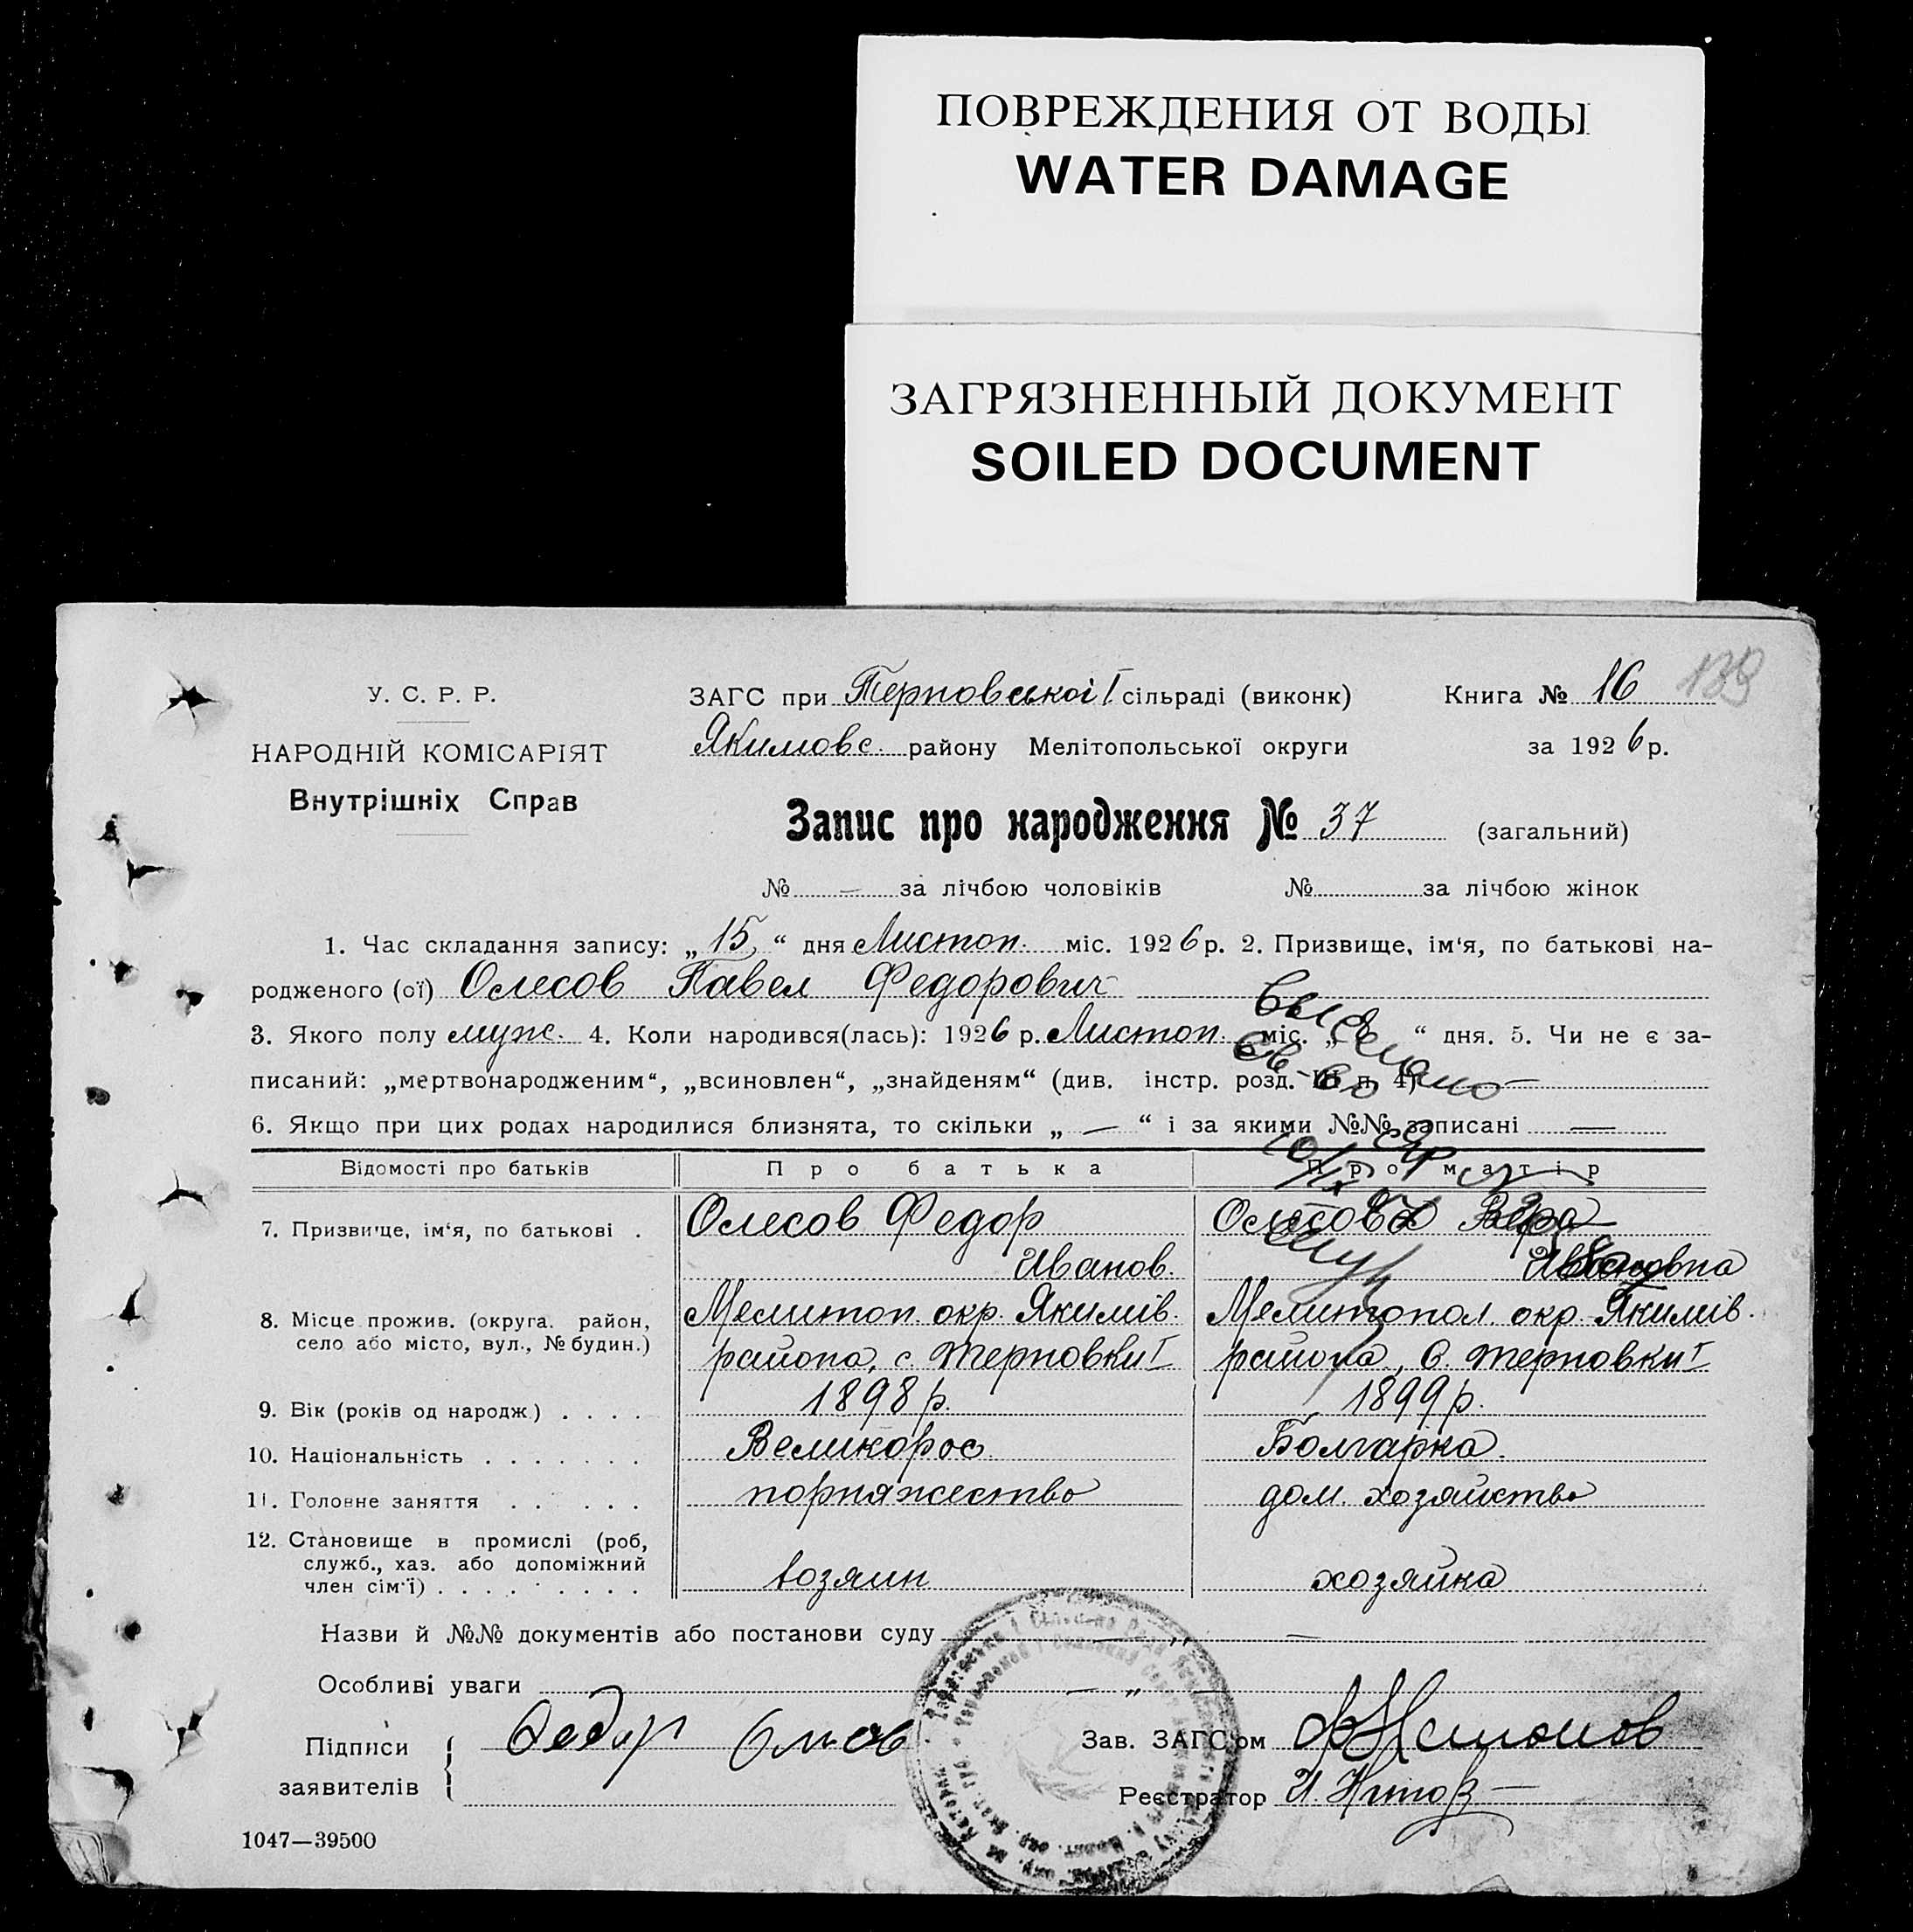 ПОВРЕЖДЕНИЯ ОТ ВОДЫ
WATER DAMAGE
ЗАГРЯЗНЕННЫЙ ДОКУМЕНТ
SOILED DOCUMENT
У. С. Р. Р.
НАРОДНІЙ КОМІСАРІЯТ
Внутрішніх Справ
ЗАГС при Терновської I сільраді (виконк)
Якимовс. району Мелітопольської округи
Книга № 16
139
за 1926 р.
Запис про народження № 37 (загальний)
№ — за лічбою чоловіків № за лічбою жінок
1. Час складання запису: „15“ дня Листоп. міс. 1926 р. 2. Призвище, ім'я, по батькові на-
родженого (ої) Олесов Павел Федорович
3. Якого полу муж. 4. Коли народився(лась): 1926 р. Листоп. міс. „ “ дня. 5. Чи не є за-
писаний: „мертвонародженим“, „всиновлен“, „знайденям“ (див. інстр. розд. III п. 4) —
6. Якщо при цих родах народилися близнята, то скільки „ — “ і за якими №№ записані —
Выслано
св-во
Відомості про батьків Про батька Про матір
7. Призвище, ім'я, по батькові . Олесов Федор Иванов. Олесова Вера Ивановна
8. Місце прожив. (округа. район,
село або місто, вул., № будин.)
Мелитоп. окр. Якимів. Мелитопол. окр. Якимів.
района, с. Терновки I района, с. Терновки I
9. Вік (років од народж.) . . . . 1898 р. 1899 р.
10. Національність . . . . . . . Великорос. Болгарка.
11. Головне заняття . . . . . . портняжество дом. хозяйство
12. Становище в промислі (роб,
служб., хаз. або допоміжний
член сім'ї) . . . . . . . . . хозяин хозяйка
Назви й №№ документів або постанови суду — „ —
Особливі уваги — „ —
Підписи
заявителів
Федор
Зав. ЗАГС'ом
Реєстратор
1047—39500